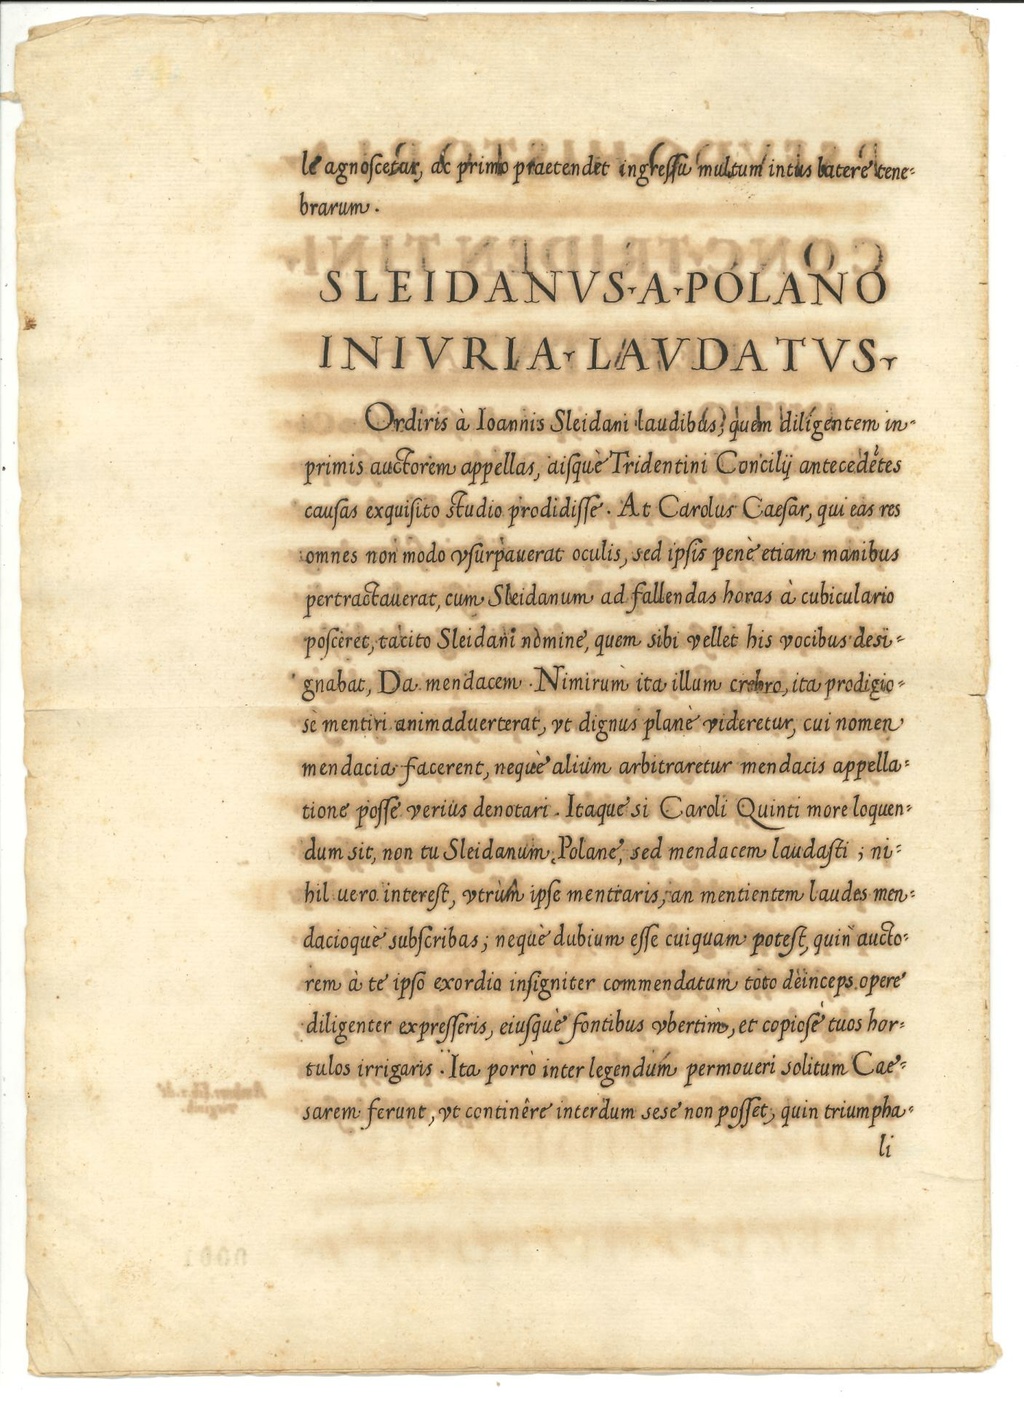 le agnoscetur, ac primo praetendet ingressu multum intus latere tene-
brarum.
SLEIDANVS A POLANO
INIVRIA LAVDATVS
Ordiris à Ioannis Sleidani laudibus, quem diligentem in-
primis auctorem appellas, aisquè Tridentini Concilij antecedẽtes
causas exquisito studio prodidisse. At Carolus Caesar, qui eas res
omnes non modo vsurpauerat oculis, sed ipsis penè etiam manibus
pertractauerat, cum Sleidanum ad fallendas horas à cubiculario
posceret, tacito Sleidani nomine, quem sibi vellet his vocibus desi-
gnabat, Da mendacem. Nimirùm ita illum crebro, ita prodigio-
sè mentiri animaduerterat, vt dignus planè videretur, cui nomen
mendacia facerent, nequè alium arbitraretur mendacis appella-
tione posse veriùs denotari. Itaque si Caroli Quinti more loquen-
dum sit, non tu Sleidanum, Polane, sed mendacem laudasti; ni-
hil uero interest, vtrùm ipse mentiaris, an mentientem laudes men-
dacioquè subscribas; nequè dubium esse cuiquam potest, quin aucto-
rem à te ipso exordio insigniter commendatum toto deinceps opere
diligenter expresseris, eiusquè fontibus vbertim, et copiosè tuos hor-
tulos irrigaris. Ita porrò inter legendum permoueri solitum Cae-
sarem ferunt, vt continêre interdum sese non posset, quin triumpha-
li